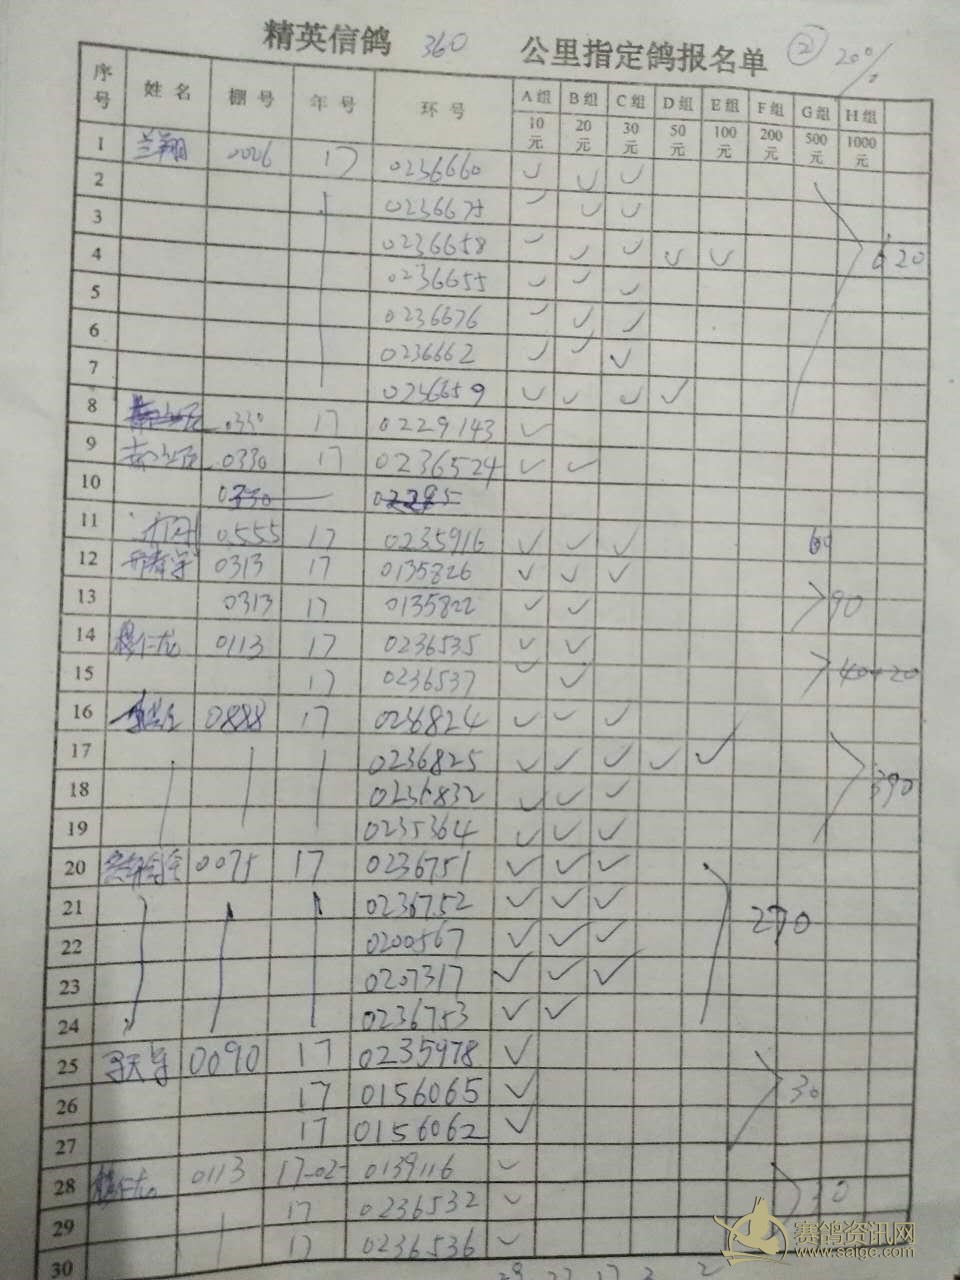 精英信鸽 360 公里指定鸽报名单 ② 20%
序号 姓名 棚号 年号 环号 A组 B组 C组 D组 E组 F组 G组 H组
10元 20元 30元 50元 100元 200元 500元 1000元
1 兰翔 0026 17 0236660 ✓ ✓ ✓
2 0236675 ✓ ✓ ✓
3 0236658 ✓ ✓ ✓ ✓ ✓ 620
4 0236655 ✓ ✓ ✓
5 0236676 ✓ ✓ ✓
6 0236662 ✓ ✓ ✓
7 0236659 ✓ ✓ ✓ ✓
8 0330 17 0229143 ✓
9 0330 17 0236524 ✓ ✓
10 0330
11 0555 17 0235916 ✓ ✓ ✓ 60
12 0313 17 0135826 ✓ ✓ ✓
13 0313 17 0135822 ✓ ✓ 90
14 0113 17 0236535 ✓ ✓
15 17 0236537 ✓ ✓
16 0888 17 ✓ ✓ ✓
17 0236825 ✓ ✓ ✓ ✓ ✓
18 0236832 ✓ ✓ ✓ 390
19 0235364 ✓ ✓ ✓
20 0075 17 0236751 ✓ ✓ ✓
21 0236752 ✓ ✓ ✓ 270
22 0200567 ✓ ✓ ✓
23 0207317 ✓ ✓ ✓
24 0236753 ✓ ✓
25 0090 17 0235978 ✓
26 17 0156065 ✓ 30
27 17 0156062 ✓
28 0113 17-02- 0139116 ✓
29 17 0236532 ✓ 30
30 17 0236536 ✓
赛鸽资讯网
www.saigc.com